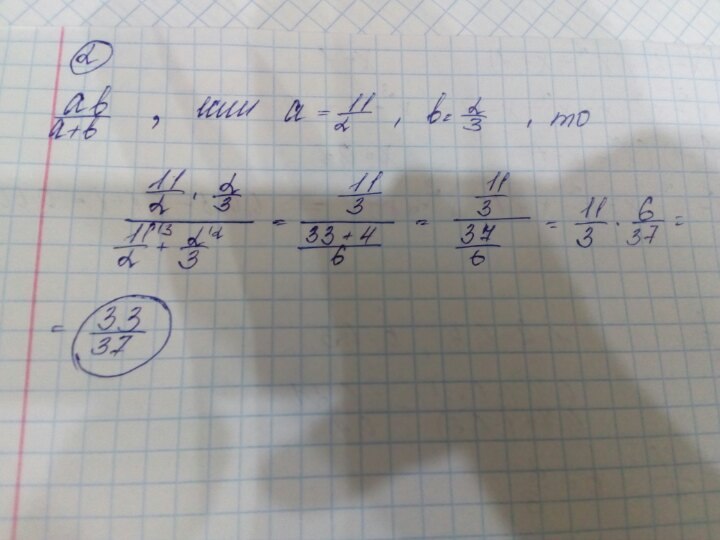 2
ab/(a+b), или a = 11/2, b = 2/3, то
(11/2 · 2/3)/(11/2 + 2/3) = (11/3)/((33+4)/6) = (11/3)/(37/6) = 11/3 · 6/37 =
= 33/37